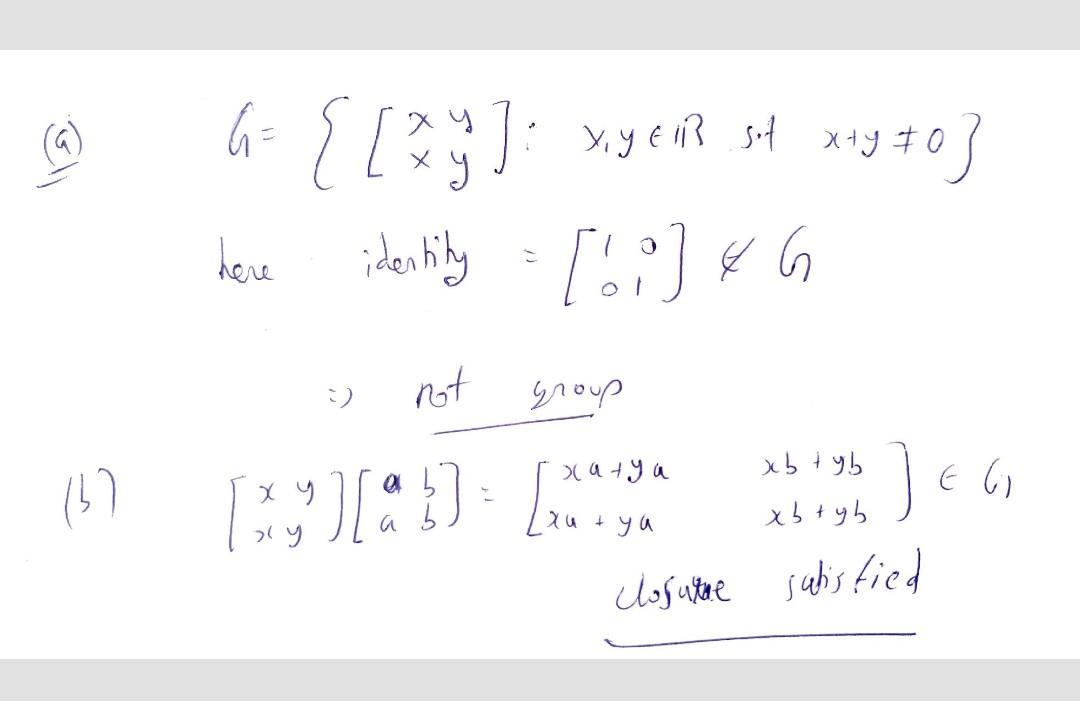 (a) G = { [ x y ; x y ] : x, y ∈ ℝ s.t x+y ≠ 0 }
here identity = [ 1 0 ; 0 1 ] ∉ G
=) not group
(b) [ x y ; x y ] [ a b ; a b ] = [ xa+ya xb+yb ; xa+ya xb+yb ] ∈ G
closure satisfied